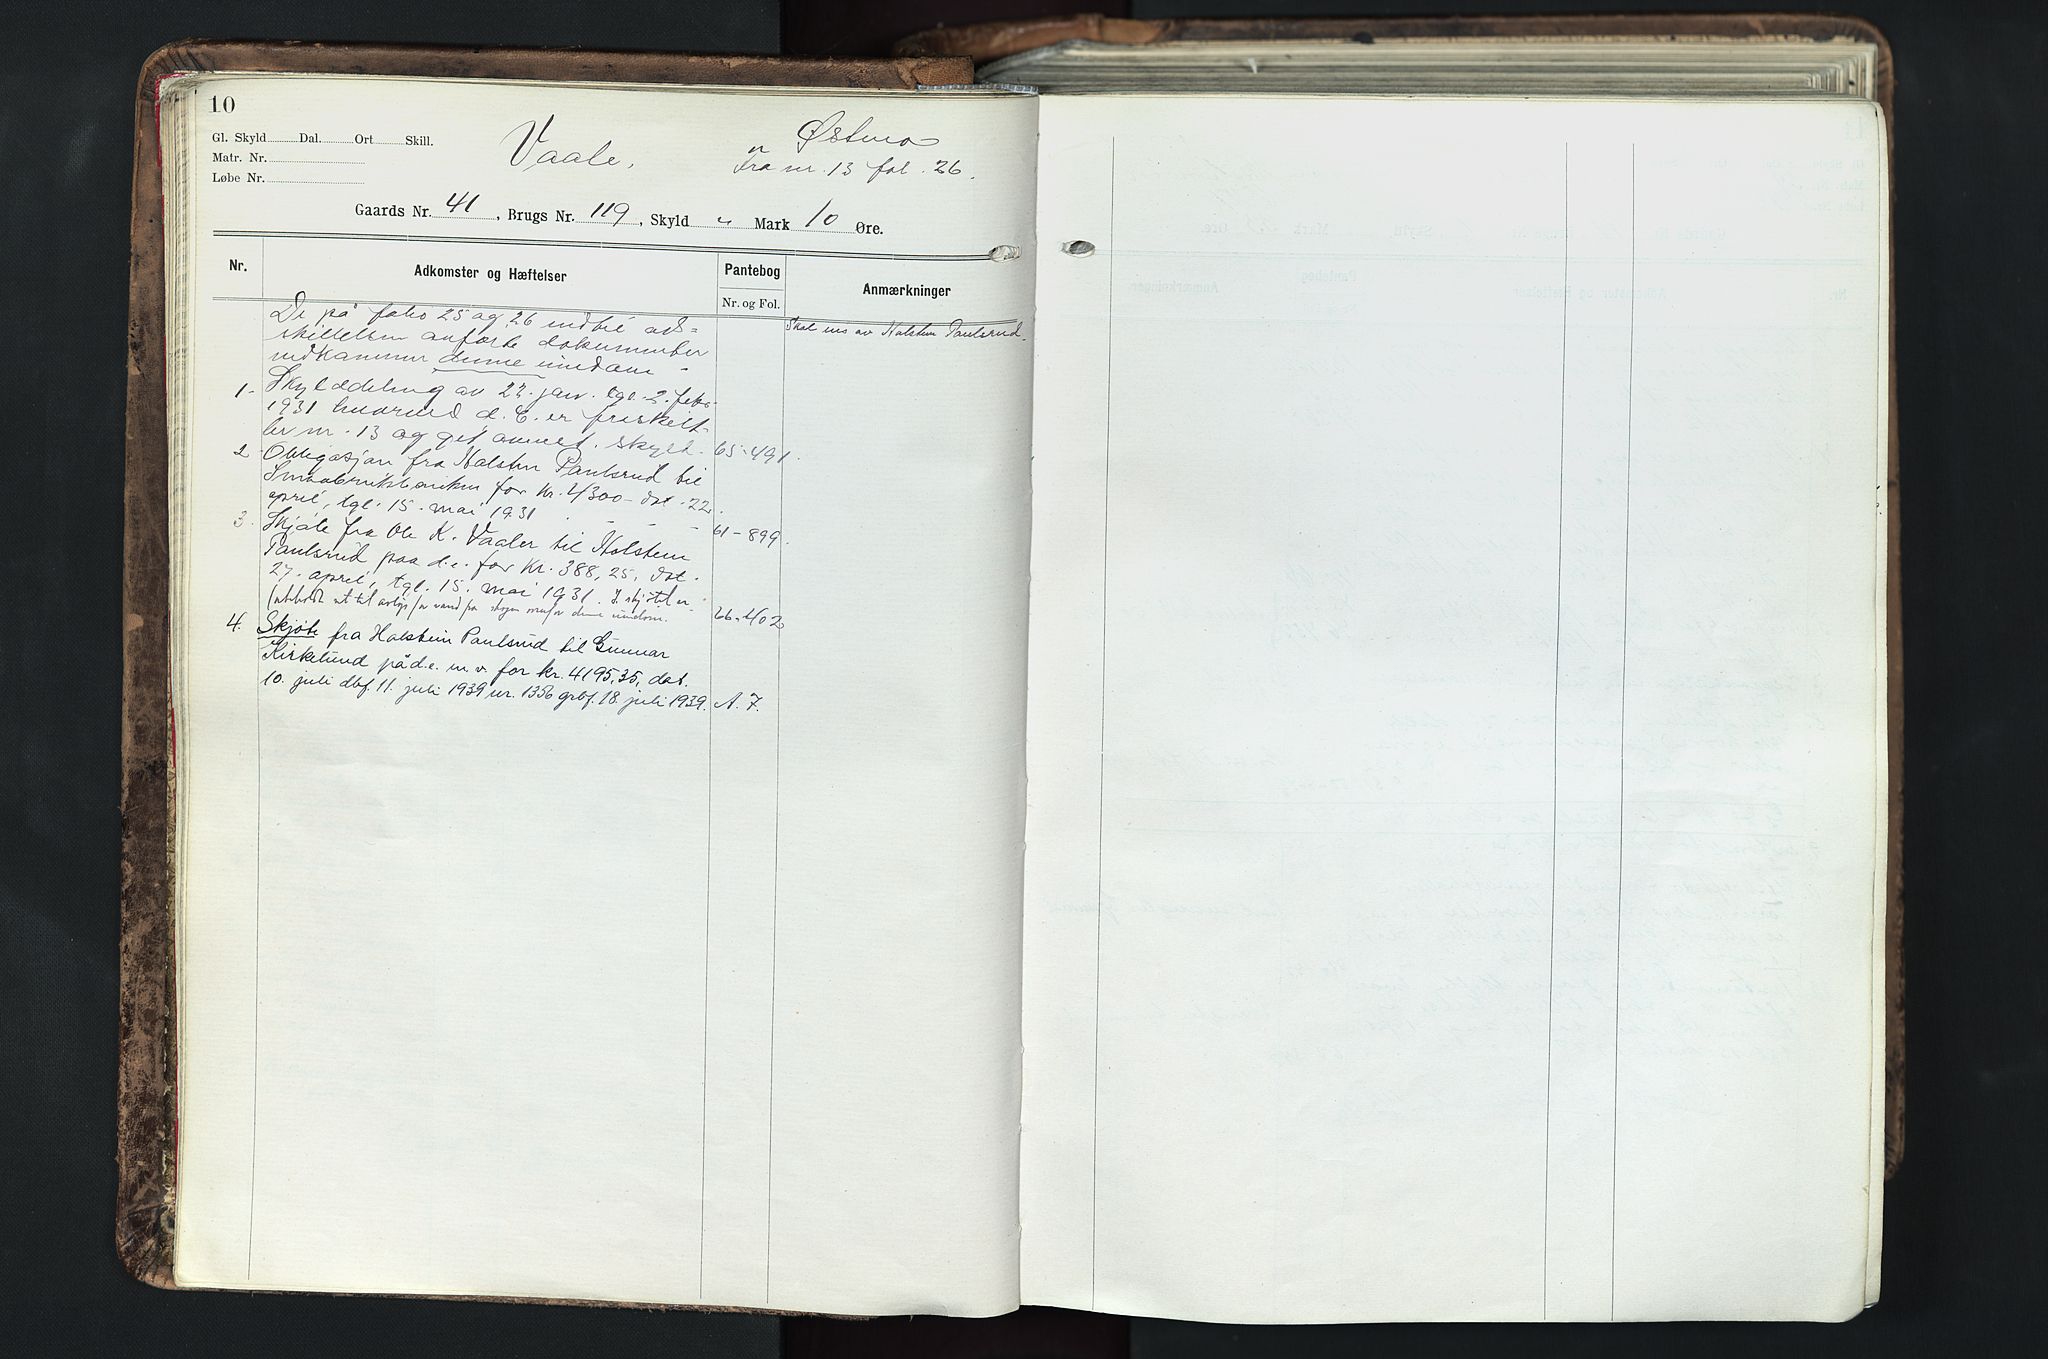 10
Gl. Skyld Dal. Ort Skill.
Matr. Nr.
Løbe Nr.
Vaale,
Østmo
Fra nr. 13 fol. 26.
Gaards Nr. 41, Brugs Nr. 119, Skyld " Mark 10 Øre.
Nr. Adkomster og Hæftelser Pantebog Anmærkninger
Nr. og Fol.
De på folio 25 og 26 indtil ad=
skillelsen anførte dokumenter
vedkommer denne eiendom -
Skal eies av Halstein Paulsrud.
1. Skylddeling av 22. jan. tgl. 2. febr.
1931 hvorved d. E. er fraskilt
br nr. 13 og git anmet. skyld. 65-491.
2. Obligasjon fra Halsten Paulsrud til
Småbrukbanken for kr. 4300- dat. 22.
april, tgl. 15. mai 1931 - - - 61-899.
3. Skjøte fra Ole K. Vaaler til Halstein
Paulsrud paa d.e. for kr. 388,25, dat.
27. april, tgl. 15. mai 1931. I skjøtet er
ret til vand fra skogen denne eiendom. 66-402
4. Skjøte fra Halstein Paulsrud til Gunnar
Kirkelund på d.e. m.v. for kr. 4195,35, dat.
10. juli dbf. 11. juli 1939 nr. 1356 grbf. 18. juli 1939. A. 7.